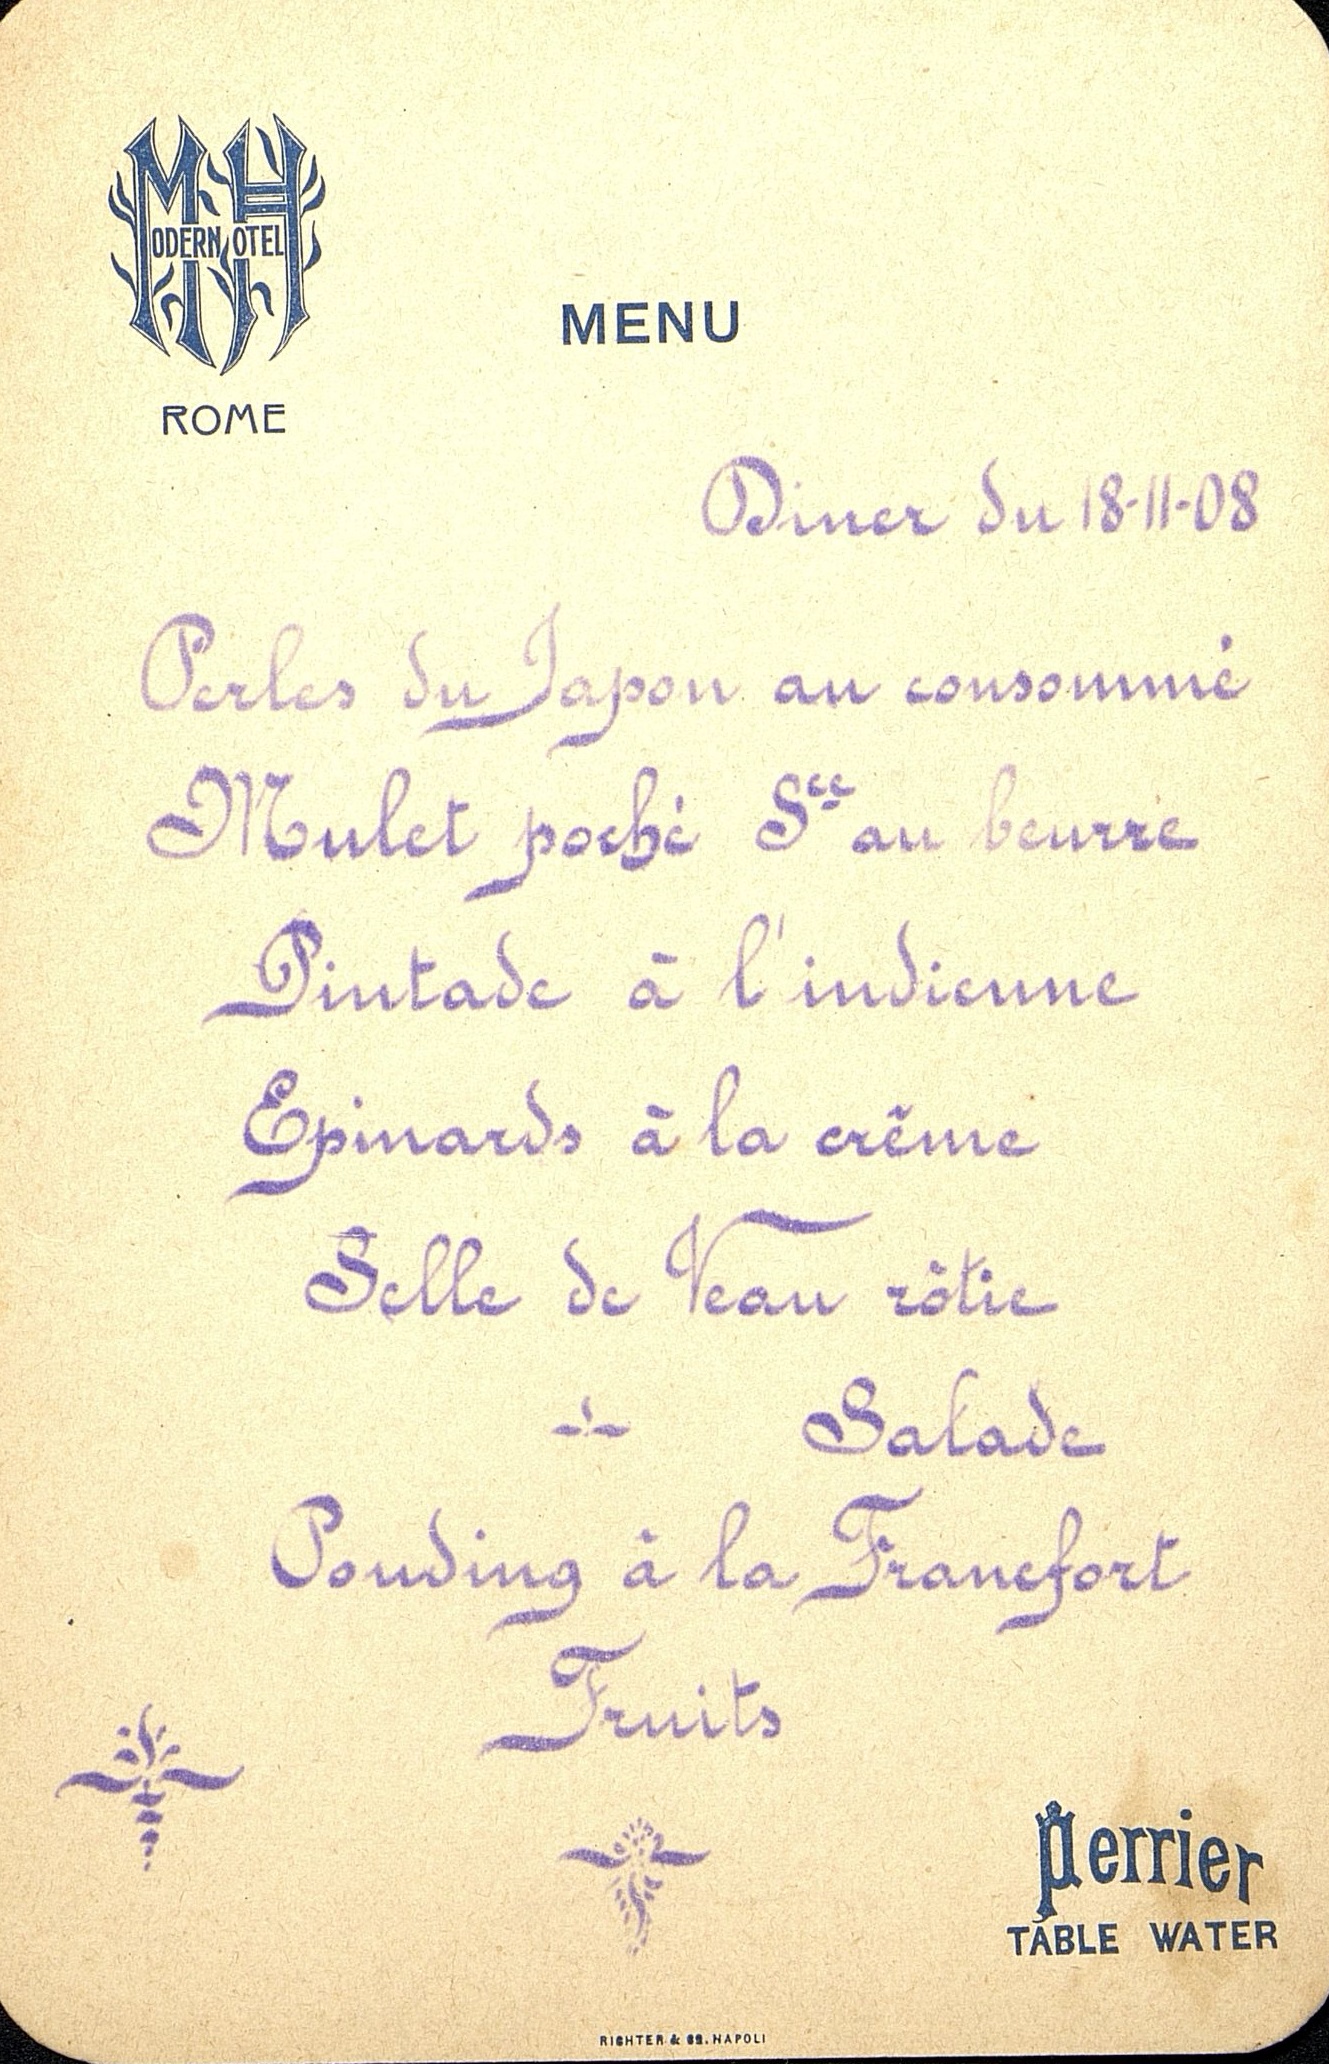 MH
MODERN HOTEL
ROME
MENU
Diner du 18-11-08
Perles du Japon au consommé
Mulet poché Sce au beurre
Pintade à l'indienne
Epinards à la crême
Selle de Veau rôtie
Salade
Pouding à la Francfort
Fruits
Perrier
TABLE WATER
RICHTER & Co. NAPOLI